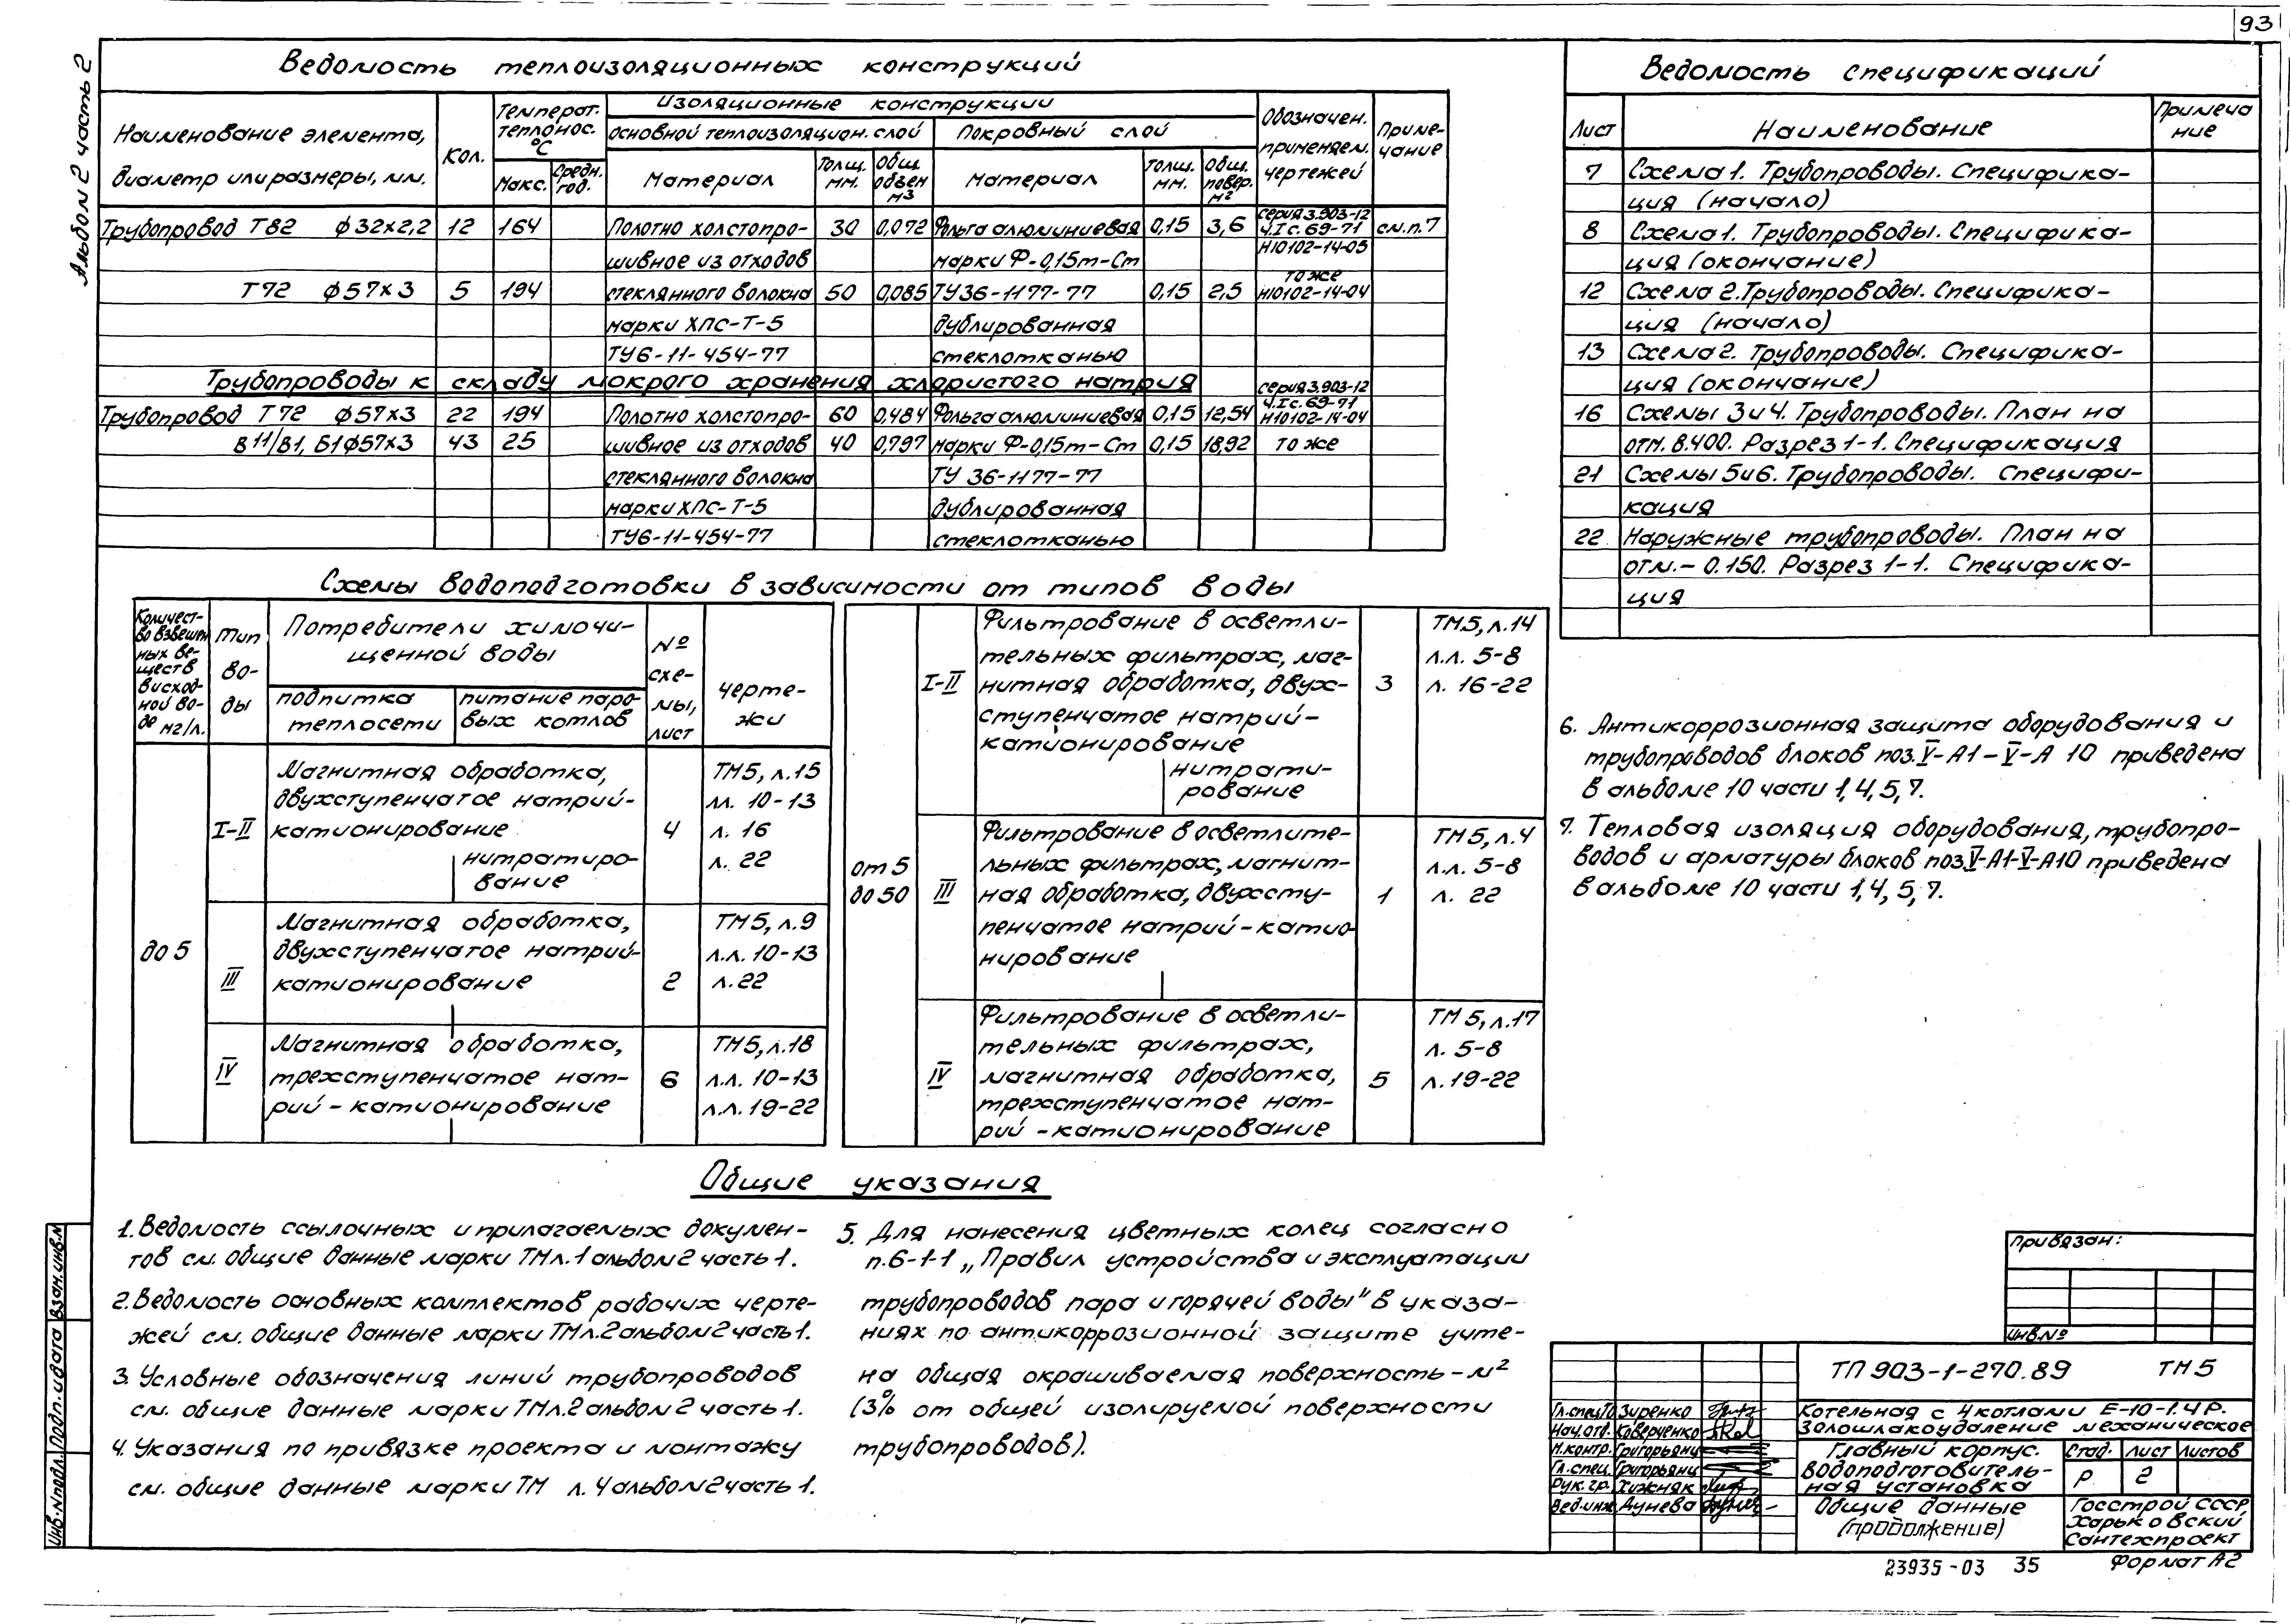 93
Альбом 2 часть 2
Ведомость теплоизоляционных конструкций
Наименование элемента, диаметр или размеры, мм.
Кол.
Температ. теплонос. °С
Макс.
Средн. год.
Изоляционные конструкции
Основной теплоизоляцион. слой
Покровный слой
Материал
Толщ. мм.
Общ. объем м³
Материал
Толщ. мм.
Общ. повер. м²
Обозначен. применяем. чертежей
Примечание
Трубопровод Т82 ф32х2,2 12 164 Полотно холстопро- 30 0,072 Фольга алюминиевая 0,15 3,6 серия 3.903-12 ч.I с. 69-71 см.п.7
шивное из отходов марки Ф-0,15т-Ст Н10102-14-05
Т72 ф57х3 5 194 стеклянного волокна 50 0,085 ТУ36-1177-77 0,15 2,5 то же Н10102-14-04
марки ХПС-Т-5 дублированная
ТУ6-11-454-77 стеклотканью
Трубопроводы к складу мокрого хранения хлористого натрия серия 3.903-12
Трубопровод Т72 ф57х3 22 194 Полотно холстопро- 60 0,484 Фольга алюминиевая 0,15 12,54 ч.I с. 69-71 Н10102-14-04
В11/В1, Б1 ф57х3 43 25 шивное из отходов 40 0,797 марки Ф-0,15т-Ст 0,15 18,92 то же
стеклянного волокна ТУ 36-1177-77
марки ХПС-Т-5 дублированная
ТУ6-11-454-77 стеклотканью
Ведомость спецификаций
Лист Наименование Примечание
7 Схема 1. Трубопроводы. Специфика-
ция (начало)
8 Схема 1. Трубопроводы. Специфика-
ция (окончание)
12 Схема 2. Трубопроводы. Специфика-
ция (начало)
13 Схема 2. Трубопроводы. Специфика-
ция (окончание)
16 Схемы 3 и 4. Трубопроводы. План на
отм. 8.400. Разрез 1-1. Спецификация
21 Схемы 5 и 6. Трубопроводы. Специфи-
кация
22 Наружные трубопроводы. План на
отм. - 0.150. Разрез 1-1. Специфика-
ция
Схемы водоподготовки в зависимости от типов воды
Количест-
во взвешен
ных ве-
ществ
в исход-
ной во-
де мг/л.
Тип
во-
ды
Потребители химочи-
щенной воды
подпитка
теплосети
питание паро-
вых котлов
№
схе-
мы,
лист
черте-
жи
до 5
I-II
Магнитная обработка,
двухступенчатое натрий-
катионирование
нитратиро-
вание
4
ТМ5, л.15
лл. 10-13
л. 16
л. 22
III
Магнитная обработка,
двухступенчатое натрий-
катионирование
2
ТМ5, л.9
л.л. 10-13
л. 22
IV
Магнитная обработка,
трехступенчатое нат-
рий - катионирование
6
ТМ5, л.18
л.л. 10-13
л.л. 19-22
от 5
до 50
I-II
Фильтрование в осветли-
тельных фильтрах, маг-
нитная обработка, двух-
ступенчатое натрий-
катионирование
нитрати-
рование
3
ТМ5, л.14
л.л. 5-8
л. 16-22
III
Фильтрование в осветлите-
льных фильтрах, магнит-
ная обработка, двухсту-
пенчатое натрий-катио-
нирование
1
ТМ5, л.4
л.л. 5-8
л. 22
IV
Фильтрование в осветли-
тельных фильтрах,
магнитная обработка,
трехступенчатое нат-
рий - катионирование
5
ТМ5, л.17
л. 5-8
л. 19-22
Общие указания
1. Ведомость ссылочных и прилагаемых докумен-
тов см. общие данные марки ТМ л.1 альбом 2 часть 1.
2. Ведомость основных комплектов рабочих черте-
жей см. общие данные марки ТМ л.2 альбом 2 часть 1.
3. Условные обозначения линий трубопроводов
см. общие данные марки ТМ л.2 альбом 2 часть 1.
4. Указания по привязке проекта и монтажу
см. общие данные марки ТМ л. 4 альбом 2 часть 1.
5. Для нанесения цветных колец согласно
п.6-1-1 „Правил устройства и эксплуатации
трубопроводов пара и горячей воды" в указа-
ниях по антикоррозионной защите учте-
на общая окрашиваемая поверхность - м²
(3% от общей изолируемой поверхности
трубопроводов).
6. Антикоррозионная защита оборудования и
трубопроводов блоков поз. V-А1-V-А 10 приведена
в альбоме 10 части 1,4,5,7.
7. Тепловая изоляция оборудования, трубопро-
водов и арматуры блоков поз V-А1-V-А10 приведена
в альбоме 10 части 1,4,5,7.
Привязан:
Инв.№
ТП 903-1-270.89 ТМ5
Котельная с 4 котлами Е-10-1.4Р.
Золошлакоудаление механическое
Гл.спец.ТО Зиренко
Нач.отд. Коверченко
Н.контр. Григорьянц
Гл.спец. Григорьянц
Рук.гр. Хижняк
Вед.инж. Дунева
Главный корпус.
Водоподготовитель-
ная установка
Стад. Лист Листов
Р 2
Общие данные
(продолжение)
Госстрой СССР
Харьковский
Сантехпроект
23935-03 35
Формат А2
Инв.№подл. Подп. и дата Взам.инв.№